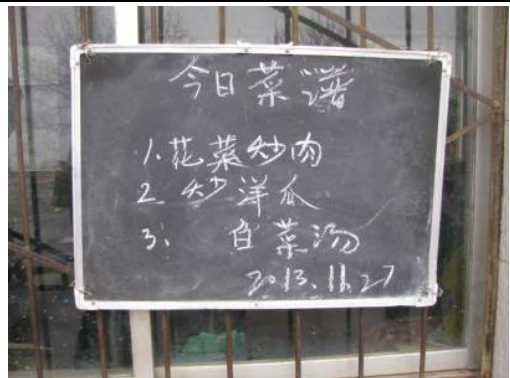 今日菜谱
1.花菜炒肉
2.炒洋瓜
3、白菜汤
2013.11.27